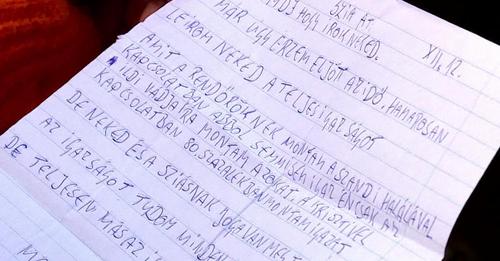 SZIA
XII. 12.
HOGY ÍROK NEKED.
MÁR ÚGY ÉRZEM ELJÖTT AZ IDŐ, HAMAROSAN
LEÍROM NEKED A TELJES IGAZSÁGOT
AMIT A RENDŐRÖKNEK MONTAM A SZANDI HALÁLÁVAL
KAPCSOLATBAN ABBÓL SEMMI SEM IGAZ ÉN CSAK AZ
ILDI VÁDJAIRA MONTAM AZOKAT. A KRISTIVEL
KAPCSOLATBAN 80 SZÁZALÉKBAN MONTAM IGAZAT
DE NEKED ÉS A SZIÁSNAK JOGA VAN
AZ IGAZSÁGOT TUDOM
DE TELJESEN MÁS AZ